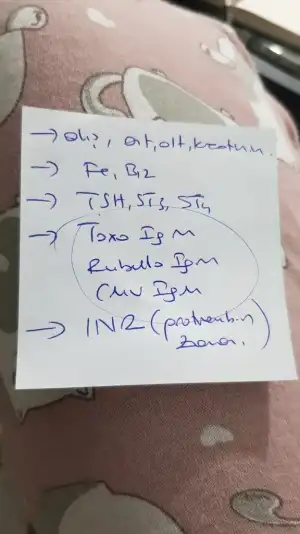 → akş, ast, alt, kreatinin.
→ Fe, B12
→ TSH, sT3, sT4
→ Toxo IgM
Rubella IgM
CMV IgM
→ INR (protrombin
zamanı)